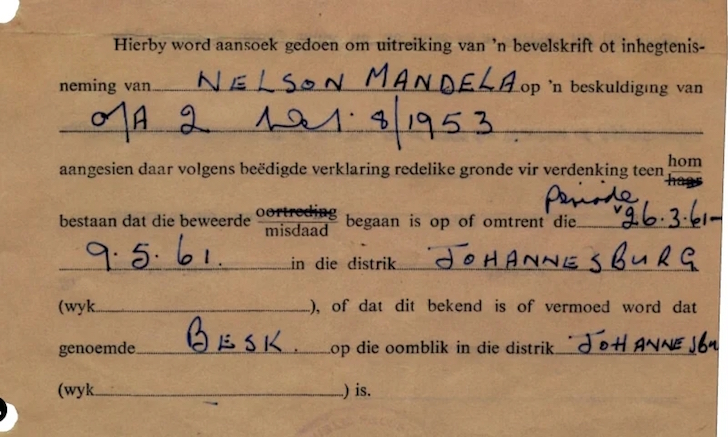 Hierby word aansoek gedoen om uitreiking van 'n bevelskrift ot inhegtenis-
neming van NELSON MANDELA op 'n beskuldiging van
o/A 2 8/1953
aangesien daar volgens beëdigde verklaring redelike gronde vir verdenking teen hom haar
bestaan dat die beweerde oortreding misdaad begaan is op of omtrent die periode 26.3.61-
9.5.61. in die distrik JOHANNESBURG
(wyk), of dat dit bekend is of vermoed word dat
genoemde BESK. op die oomblik in die distrik JOHANNESBU
(wyk) is.